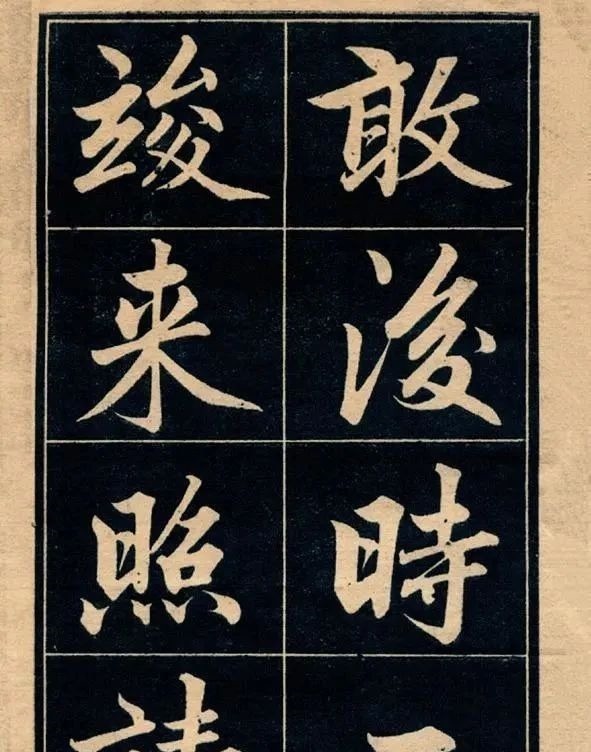 敢後時
竣来照